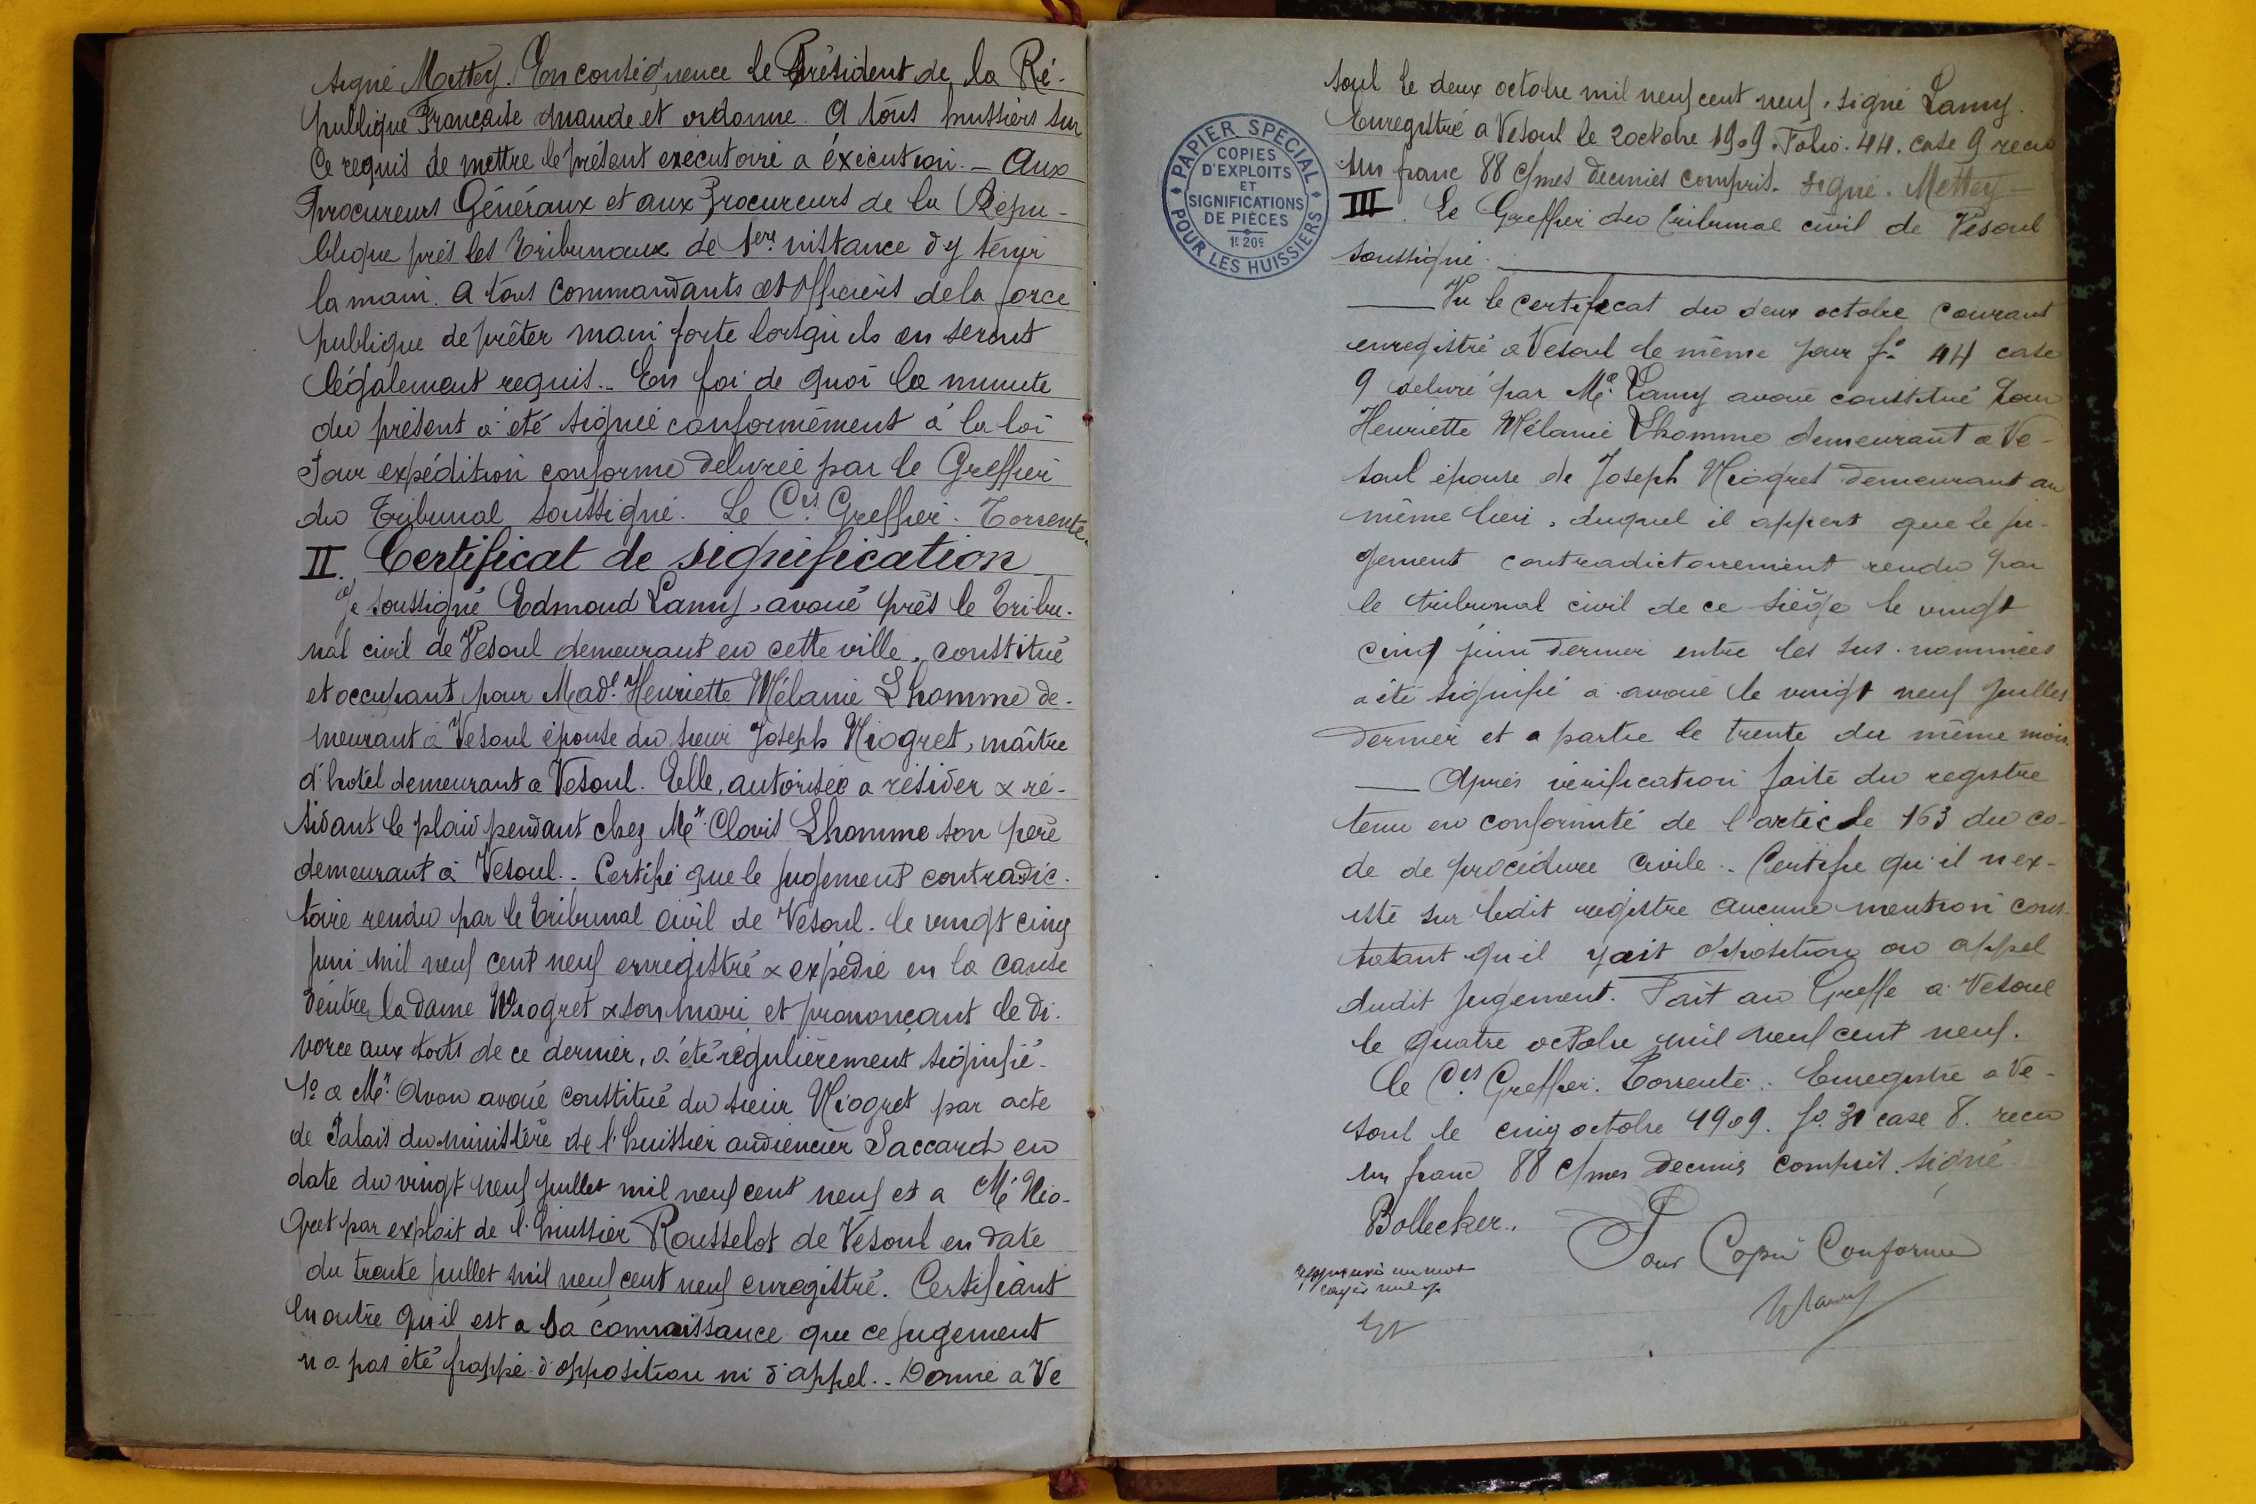 signé Mettey. En conséquence le Président de la Ré-
publique Française mande et ordonne. A tous huissiers sur
ce requis de mettre le présent executoire a éxécution. — Aux
Procureurs Généraux et aux Procureurs de la Répu-
blique près les Tribunaux de 1ère instance d'y tenir
la main. A tous Commandants et Officiers de la force
publique de prêter main forte lorsqu'ils en seront
légalement requis.. En foi de quoi la minute
du présent a été signée conformément à la loi
Pour expédition conforme délivrée par le Greffier
du Tribunal soussigné. Le Cis Greffier. Torrente.
II. Certificat de signification
Je soussigné Edmond Lamy, avoué près le Tribu-
nal civil de Vesoul demeurant en cette ville, constitué
et occupant pour Made Henriette Mélanie Lhomme de-
meurant à Vesoul épouse du sieur Joseph Niogret, maître
d'hotel demeurant a Vesoul. Elle, autorisée a résider & ré-
sidant le plaid pendant chez Mr Clovis Lhomme son père
demeurant à Vesoul.. Certifie que le jugement contradic-
toire rendu par le tribunal civil de Vesoul. le vingt cinq
juin mil neuf cent neuf enregistré & expédié en la cause
d'entre la dame Niogret & son mari et prononçant le di-
vorce aux torts de ce dernier, a été régulièrement signifié.
1º a Me Avon avoué constitué du sieur Niogret par acte
de Palais du ministère de l'huissier audiencier Saccard en
date du vingt neuf juillet mil neuf cent neuf et a Mr Nio-
gret par exploit de l'huissier Rousselot de Vesoul en date
du trente juillet mil neuf cent neuf enregistré. Certifiant
en outre qu'il est a sa connaissance que ce jugement
n'a pas été frappé d'opposition ni d'appel.. Donné a Ve
PAPIER SPECIAL
COPIES
D'EXPLOITS
ET
SIGNIFICATIONS
DE PIÈCES
1f 20c
POUR LES HUISSIERS
soul le deux octobre mil neuf cent neuf. signé Lamy.
Enregistré a Vesoul le 2 octobre 1909. Folio. 44. case 9 recu
un franc 88 c/mes decimes compris. signé. Mettey
III. Le Greffier du tribunal civil de Vesoul
soussigné.
Vu le certificat du deux octobre courant
enregistré a Vesoul le même jour fº 44 case
9 délivré par Me Lamy avoué constitué pour
Henriette Mélanie Lhomme demeurant a Ve-
soul épouse de Joseph Niogret demeurant au
même lieu, duquel il appert que le ju-
gement contradictoirement rendu par
le tribunal civil de ce siège le vingt
cinq juin dernier entre les sus-nommées
a été signifié a avoué le vingt neuf juillet
dernier et a partie le trente du même mois.
Après vérification faite du registre
tenu en conformité de l'article 163 du co-
de de procédure civile.. Certifie qu'il n'ex-
iste sur ledit registre aucune mention cons-
tatant qu'il y ait opposition ou appel
dudit jugement. Fait au Greffe a Vesoul
le quatre octobre mil neuf cent neuf.
Le Cis Greffier. Torrente.. Enregistré a Ve-
soul le cinq octobre 1909. fº 31 case 8. recu
un franc 88 c/mes decimes compris. signé
Bollecker..
Pour Copie Conforme
Lamy
approuvé un mot
rayé nul